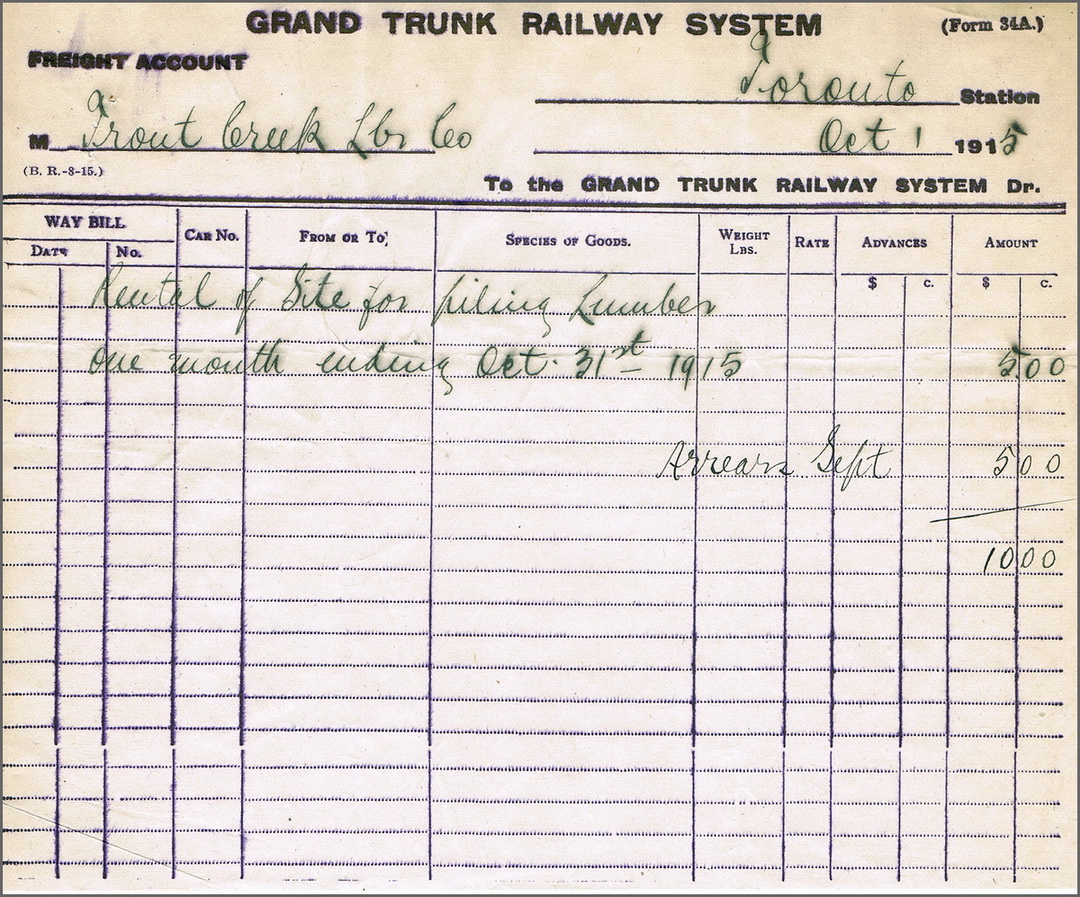 GRAND TRUNK RAILWAY SYSTEM (Form 34A.)
FREIGHT ACCOUNT
Toronto Station
M Trout Creek Lbr Co Oct 1 1915
(B. R.-8-15.)
To the GRAND TRUNK RAILWAY SYSTEM Dr.
WAY BILL CAR No. FROM OR TO SPECIES OF GOODS. WEIGHT LBS. RATE ADVANCES AMOUNT
DATE No.
$ c. $ c.
Rental of Site for piling Lumber
one month ending Oct. 31st 1915 5 00
Arrears Sept 5 00
10 00